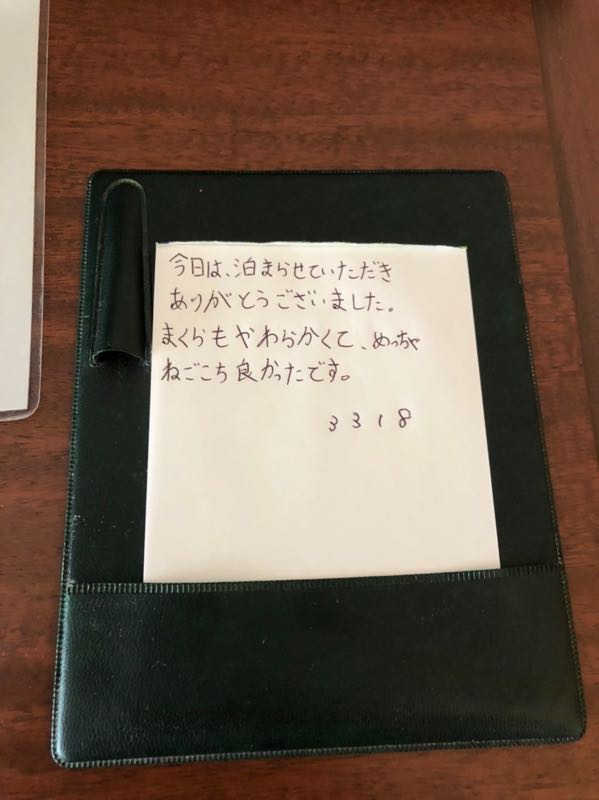 今日は、泊まらせていただき
ありがとうございました。
まくらもやわらかくて、めっちゃ
ねごこち良かったです。
3318